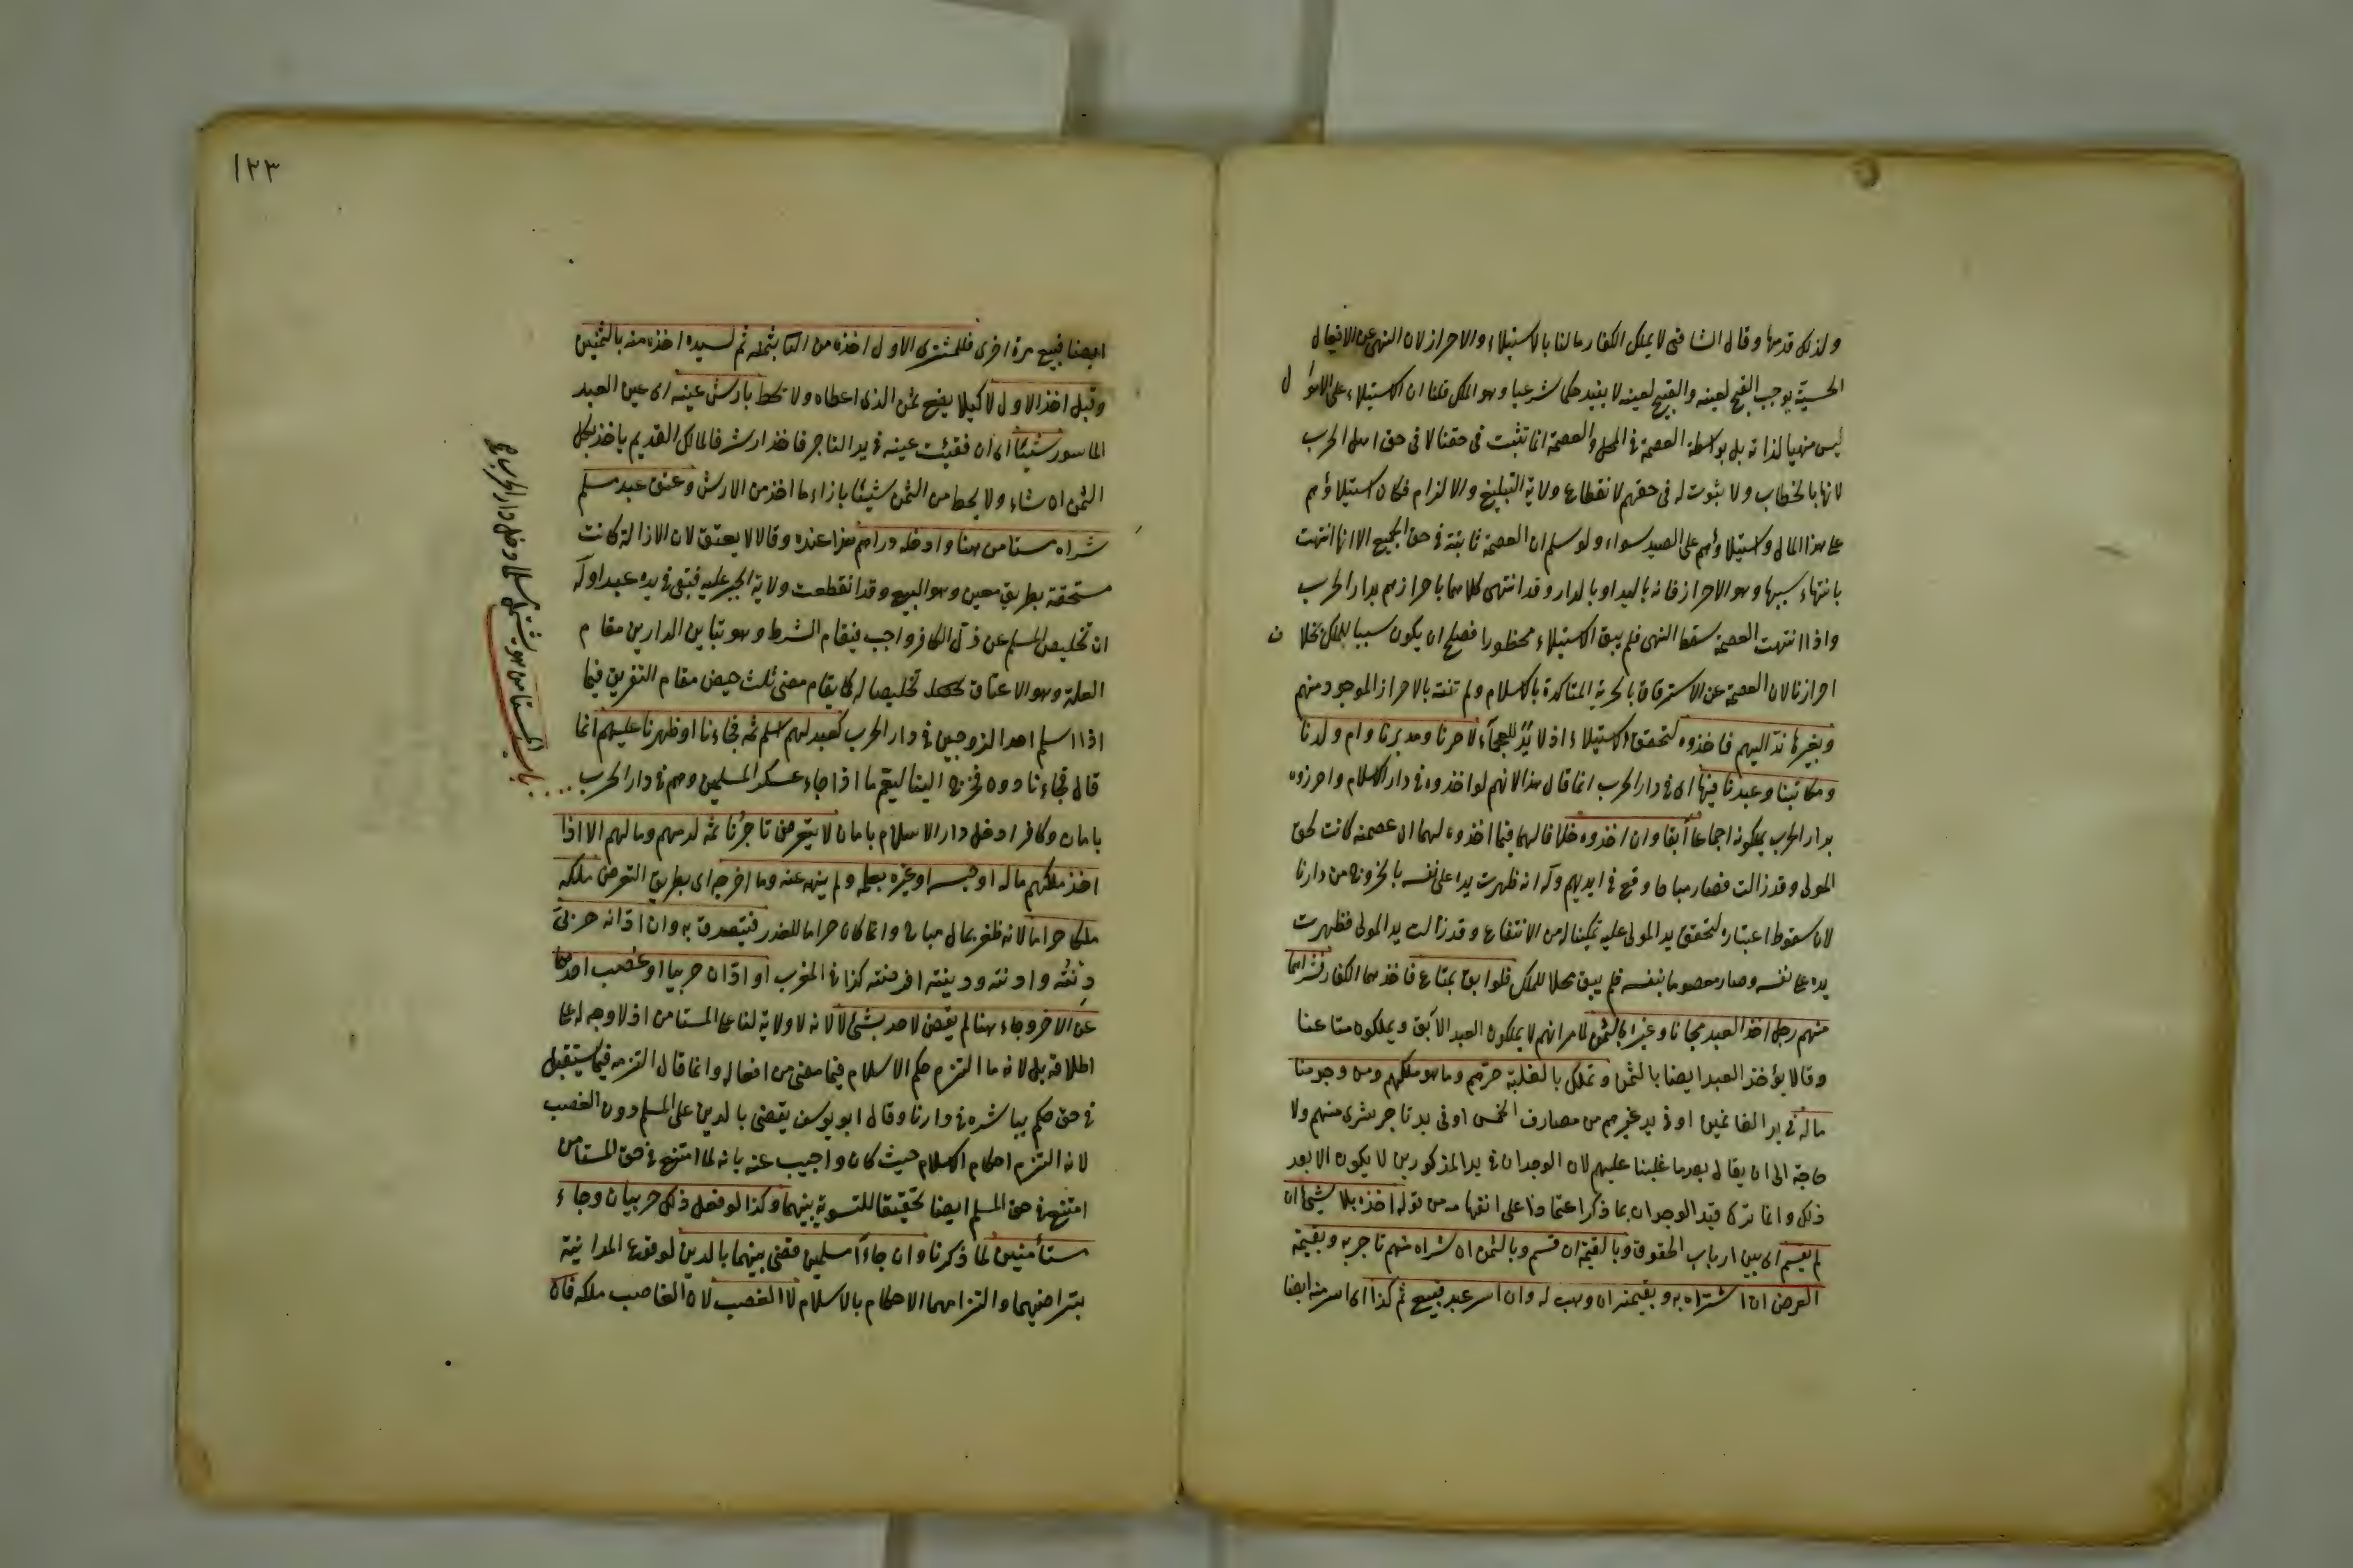 ولذلك قدمها وقال الشافعى لا يملك الكفار مالنا بالاستيلاء والاحراز لان النهى عن الافعال
الحسية يوجب القبح لعينه والقبيح لعينه لا يفيد حكما شرعيا وهو الملك قلنا ان الاستيلاء على الاموال
ليس منهيا لذاته بل بواسطة العصمة فى المحل والعصمة انما تثبت فى حقنا لا فى حق اهل الحرب
لانها بالخطاب ولا ثبوت له فى حقهم لانقطاع ولاية التبليغ والالزام فكان استيلاؤهم
على هذا المال واستيلاؤهم على الصيد سواء ولو سلم ان العصمة ثابتة فى حق الجميع الا انها انتهت
بانتهاء سببها وهو الاحراز فانه باليد او بالدار وقد انتهى كلاهما باحرازهم بدار الحرب
واذا انتهت العصمة سقط النهى فلم يبق الاستيلاء محظورا فصلح ان يكون سببا للملك بخلاف
احرازنا لان العصمة عن الاسترقاق بالحرية المتاكدة بالاسلام ولم تنته بالاحراز الموجود منهم
وبغيرها ندّ اليهم فاخذوه لتحقق الاستيلاء اذ لا يد للعجماء لا حرنا ومدبرنا وام ولدنا
ومكاتبنا وعبدنا فيها اى فى دار الحرب انما قال هذا لانهم لو اخذوه فى دار الاسلام واحرزوه
بدار الحرب يملكونه اجماعا آبقا وان اخذوه خلافا لهما فيما اخذوه لهما ان عصمته كانت لحق
المولى وقد زالت فصار مباحا وقع فى ايديهم وله انه ظهرت يده على نفسه بالخروج من دارنا
لان سقوط اعتباره لتحقق يد المولى عليه تمكينا له من الانتفاع وقد زالت يد المولى فظهرت
يده على نفسه وصار معصوما بنفسه فلم يبق محلا للملك فلو ابق بمتاع فاخذهما الكفار فشراهما
منهم رجل اخذ العبد مجانا وغيره بالثمن لما مر انهم لا يملكون العبد الآبق ويملكون متاعنا
وقالا يؤخذ العبد ايضا بالثمن وتملك بالغلبة حرّهم وما هو ملكهم ومن وجد منا
ماله فى يد الغانمين او فى يد غيرهم من مصارف الخمس او فى يد تاجر مشرى منهم ولا
حاجة الى ان يقال بعد ما غلبنا عليهم لان الوجدان فى يد المذكورين لا يكون الا بعد
ذلك وانما ترك قيد الوجدان بما ذكر اعتمادا على انفهامه من قوله اخذه بلا شئ ان
لم يقسم اى بين ارباب الحقوق وبالقيمة ان قسم وبالثمن ان شراه منهم تاجر به وبقيمة
العرض ان اشتراه به وبقيمته ان وهب له وان اسر عبد فبيع ثم كذا اى اسر مرة ايضا
١٢٣
ايضا فبيع مرة اخرى فللمشترى الاول اخذه من الثانى بثمنه ثم لسيده اخذه منه بالثمنين
وقبل اخذ الاول لا كيلا يضيع ثمن الذى اعطاه ولا تحط بارش عينه اى عين العبد
الماسور شيئا اى ان فقئت عينه فى يد التاجر فاخذ ارشه فالمالك القديم ياخذ بكل
الثمن ان شاء ولا يحط من الثمن شيئا بازاء ما اخذ من الارش وعتق عبد مسلم
شراه مستأمن هنا وادخله دارهم هذا عنده وقالا لا يعتق لان الازالة كانت
مستحقة بطريق معين وهو البيع وقد انقطعت ولاية الجبر عليه فبقى فى يده عبدا وله
ان تخليص المسلم عن ذل الكافر واجب فيقام الشرط وهو تباين الدارين مقام
العلة وهو الاعتاق تخليصا له كما يقام مضى ثلث حيض مقام التفريق فيما
اذا اسلم احد الزوجين فى دار الحرب كعبد لهم اسلم ثمه فجاءنا او ظهرنا عليهم انما
قال فجاءنا دون فخرج الينا ليعم ما اذا جاء عسكر المسلمين وهم فى دار الحرب
باب المستأمن هو يشتمل مسلما دخل دار الحرب
بامان وكافرا دخل دار الاسلام بامان لا يتعرض تاجرنا ثمه لدمهم ومالهم الا اذا
اخذ ملكهم ماله او حبسه او غيره بعلمه ولم ينهه عنه وما اخرجه اى بطريق التعرض ملكه
ملكا حراما لانه ظفر بمال مباح وانما كان حراما للغدر فيتصدق به وان ادانه حربى
دنته وادنته وديّنته اقرضته كذا فى المغرب او ادان حربيا او غصب احدهما
عن الاخر وجاء هنا لم يقض لاحد بشئ لا لانه لا ولاية لنا على المستامن اذ لا وجه له على
اطلاقه بل لانه ما التزم حكم الاسلام فيما مضى من افعاله وانما قال التزمه فيما يستقبل
فى حق حكم يباشره فى دارنا وقال ابو يوسف يقضى بالدين على المسلم دون الغصب
لانه التزم احكام الاسلام حيث كان واجيب عنه بانه لما امتنع فى حق المستامن
امتنع فى حق المسلم ايضا تحقيقا للتسوية بينهما وكذا لو فعل ذلك حربيان وجاء
مستأمنين لما ذكرنا وان جاءا مسلمين قضى بينهما بالدين لوقوع المداينة
بتراضيهما والتزامهما الاحكام بالاسلام لا الغصب لان الغاصب ملكه فان